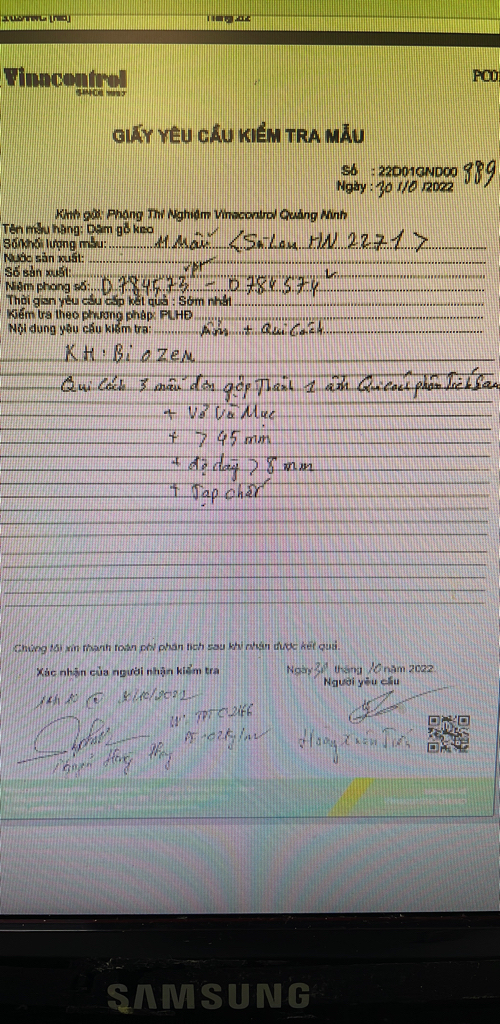 Vinacontrol
SINCE 1957
PC0
GIẤY YÊU CẦU KIỂM TRA MẪU
Số : 22D01GND00 889
Ngày : 30/10/2022
Kính gửi: Phòng Thí Nghiệm Vinacontrol Quảng Ninh
Tên mẫu hàng: Dăm gỗ keo
Số/khối lượng mẫu: Mẫu <Sà Lan HN 2271>
Nước sản xuất:
Số sản xuất:
Niêm phong số: 0784573 - 0784574
Thời gian yêu cầu cấp kết quả : Sớm nhất
Kiểm tra theo phương pháp: PLHĐ
Nội dung yêu cầu kiểm tra: Ẩm + Qui Cách
KH: BiOZEN
Qui Cách 3 mẫu đơn gộp Thành 1 ảnh Qui cách phân Tích Sau
+ Vỏ Và Mục
+ > 45 mm
+ độ dày > 8 mm
+ Tạp chất
Chúng tôi xin thanh toán phí phân tích sau khi nhận được kết quả.
Xác nhận của người nhận kiểm tra
Ngày 30 tháng 10 năm 2022
Người yêu cầu
30/10/2022
Hoàng Xuân
SAMSUNG